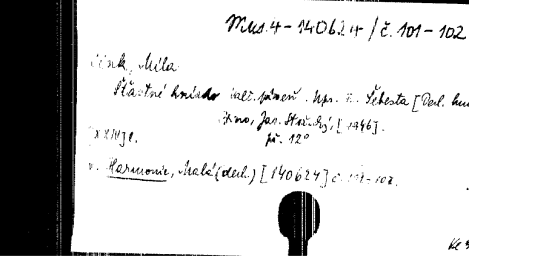 Mus. 4 - 140624 / č. 101 - 102
Míla
Šťastné hnízdo valč. píseň. Upr. Šebesta [Dech.
Brno, Jar. Stožický, [1946].
př. 12°
v. Harmonie, Malá (dech.) [140624] č. 101-102.